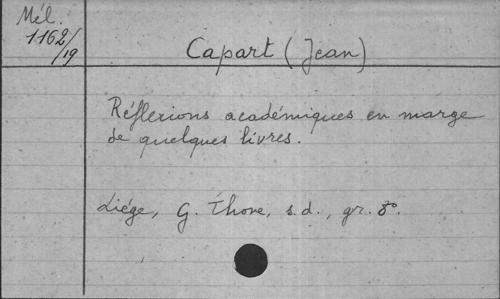 Mél.
1162/19
Capart (Jean)
Réflexions académiques en marge
de quelques livres.
Liége, G. Thone, s.d., gr. 8°.